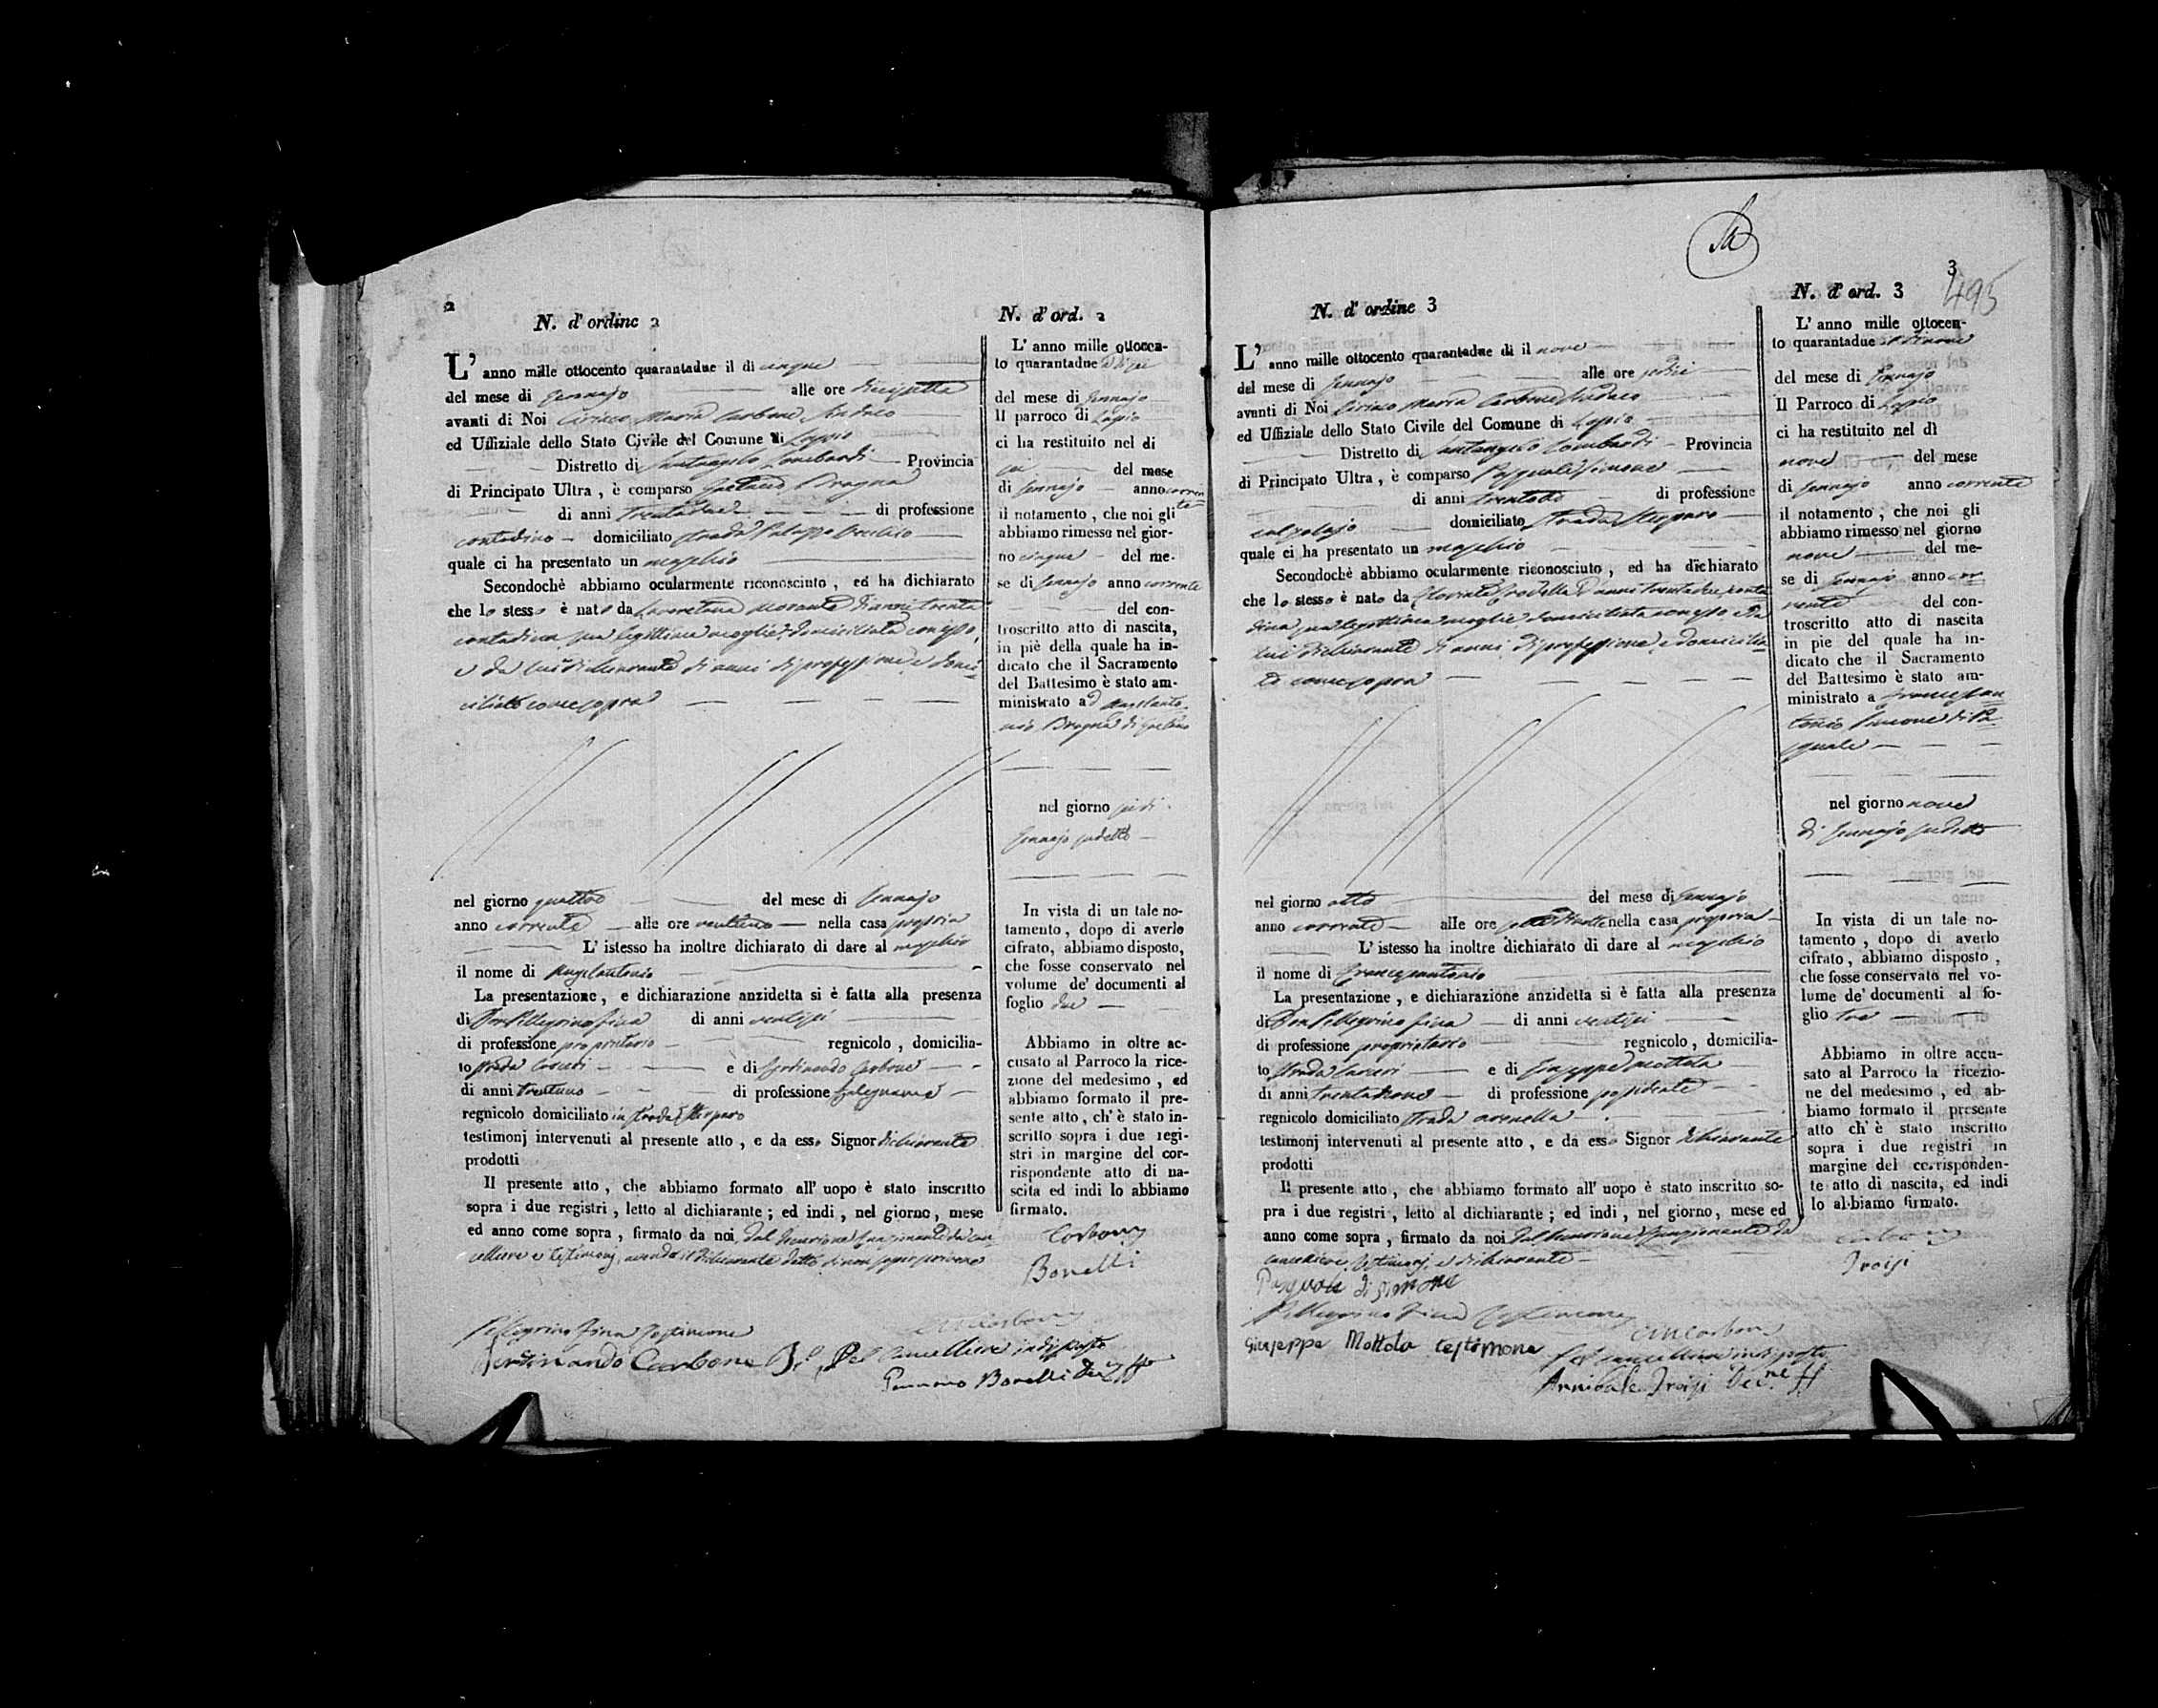 2
N. d' ordine 2
L' anno mille ottocento quarantadue il di cinque
del mese di Gennajo alle ore diciassette
avanti di Noi Ciriaco Maria Carbone Sindaco
ed Uffiziale dello Stato Civile del Comune di Lapio
Distretto di Santangelo Lombardi Provincia
di Principato Ultra, è comparso Gaetano Dragna
di anni trentadue di professione
contadino domiciliato strada Palazzo
quale ci ha presentato un maschio
Secondochè abbiamo ocularmente riconosciuto, ed ha dichiarato
che lo stesso è nato da di anni trenta
contadina sua legittima moglie domiciliata con esso,
e da lui dichiarante di anni di professione e domi-
ciliato come sopra
nel giorno quattro del mese di Gennajo
anno corrente alle ore ventuno nella casa propria
L' istesso ha inoltre dichiarato di dare al maschio
il nome di Angelantonio
La presentazione, e dichiarazione anzidetta si è fatta alla presenza
di Don Pellegrino Fina di anni ventisei
di professione proprietario regnicolo, domicilia-
to strada e di Ferdinando Carbone
di anni trentuno di professione falegname
regnicolo domiciliato in strada
testimonj intervenuti al presente atto, e da esso Signor dichiarante
prodotti
Il presente atto, che abbiamo formato all' uopo è stato inscritto
sopra i due registri, letto al dichiarante; ed indi, nel giorno, mese
ed anno come sopra, firmato da noi, dal Decurione funzionante da can-
celliere e testimonj, avendo il dichiarante detto di non saper scrivere
Pellegrino Fina Testimone
Ferdinando Carbone
Pel Cancelliere indisposto
Bonelli
N. d' ord. 2
L' anno mille ottocen-
to quarantadue il dì sei
del mese di Gennajo
Il parroco di Lapio
ci ha restituito nel di
sei del mese
di Gennajo anno corren-
te
il notamento, che noi gli
abbiamo rimesso nel gior-
no cinque del me-
se di Gennajo anno corrente
del con-
troscritto atto di nascita,
in piè della quale ha in-
dicato che il Sacramento
del Battesimo è stato am-
ministrato ad Angelanto-
nio Dragna di Gaetano
nel giorno sei di
Gennajo sudetto
In vista di un tale no-
tamento, dopo di averlo
cifrato, abbiamo disposto,
che fosse conservato nel
volume de' documenti al
foglio due
Abbiamo in oltre ac-
cusato al Parroco la rice-
zione del medesimo, ed
abbiamo formato il pre-
sente atto, ch' è stato in-
scritto sopra i due regi-
stri in margine del cor-
rispondente atto di na-
scita ed indi lo abbiamo
firmato.
Carbone
Bonelli
3
495
N. d' ordine 3
L' anno mille ottocento quarantadue di il nove
del mese di Gennajo alle ore sedici
avanti di Noi Ciriaco Maria Carbone Sindaco
ed Uffiziale dello Stato Civile del Comune di Lapio
Distretto di Santangelo Lombardi Provincia
di Principato Ultra, è comparso Pasquale Simone
di anni trentotto di professione
calzolajo domiciliato strada
quale ci ha presentato un maschio
Secondochè abbiamo ocularmente riconosciuto, ed ha dichiarato
che lo stesso è nato da di anni trentadue conta-
dina sua legittima moglie domiciliata con esso e da
lui dichiarante di anni di professione, e domicilia-
to come sopra
nel giorno otto del mese di Gennajo
anno corrente alle ore nella casa propria
L' istesso ha inoltre dichiarato di dare al maschio
il nome di Francescantonio
La presentazione, e dichiarazione anzidetta si è fatta alla presenza
di Don Pellegrino Fina di anni ventisei
di professione proprietario regnicolo, domicilia-
to strada e di Giuseppe Mottola
di anni trentanove di professione possidente
regnicolo domiciliato strada
testimonj intervenuti al presente atto, e da esso Signor dichiarante
prodotti
Il presente atto, che abbiamo formato all' uopo è stato inscritto so-
pra i due registri, letto al dichiarante; ed indi, nel giorno, mese ed
anno come sopra, firmato da noi dal Decurione funzionante da
cancelliere, testimonj, e dichiarante
Pasquale di Simone
Pellegrino Fina Testimone
Giuseppe Mottola testimone
Pel cancelliere indisposto
Annibale Troisi
N. d' ord. 3
L' anno mille ottocen-
to quarantadue il dì nove
del mese di Gennajo
Il Parroco di Lapio
ci ha restituito nel dì
nove del mese
di Gennajo anno corrente
il notamento, che noi gli
abbiamo rimesso nel giorno
nove del me-
se di Gennajo anno cor-
rente del con-
troscritto atto di nascita
in pie del quale ha in-
dicato che il Sacramento
del Battesimo è stato am-
ministrato a Francescan-
tonio Simone di Pa-
squale
nel giorno nove
di Gennajo sudetto
In vista di un tale no-
tamento, dopo di averlo
cifrato, abbiamo disposto,
che fosse conservato nel vo-
lume de' documenti al fo-
glio tre
Abbiamo in oltre accu-
sato al Parroco la ricezio-
ne del medesimo, ed ab-
biamo formato il presente
atto ch' è stato inscritto
sopra i due registri in
margine del corrisponden-
te atto di nascita, ed indi
lo abbiamo firmato.
Carbone
Troisi